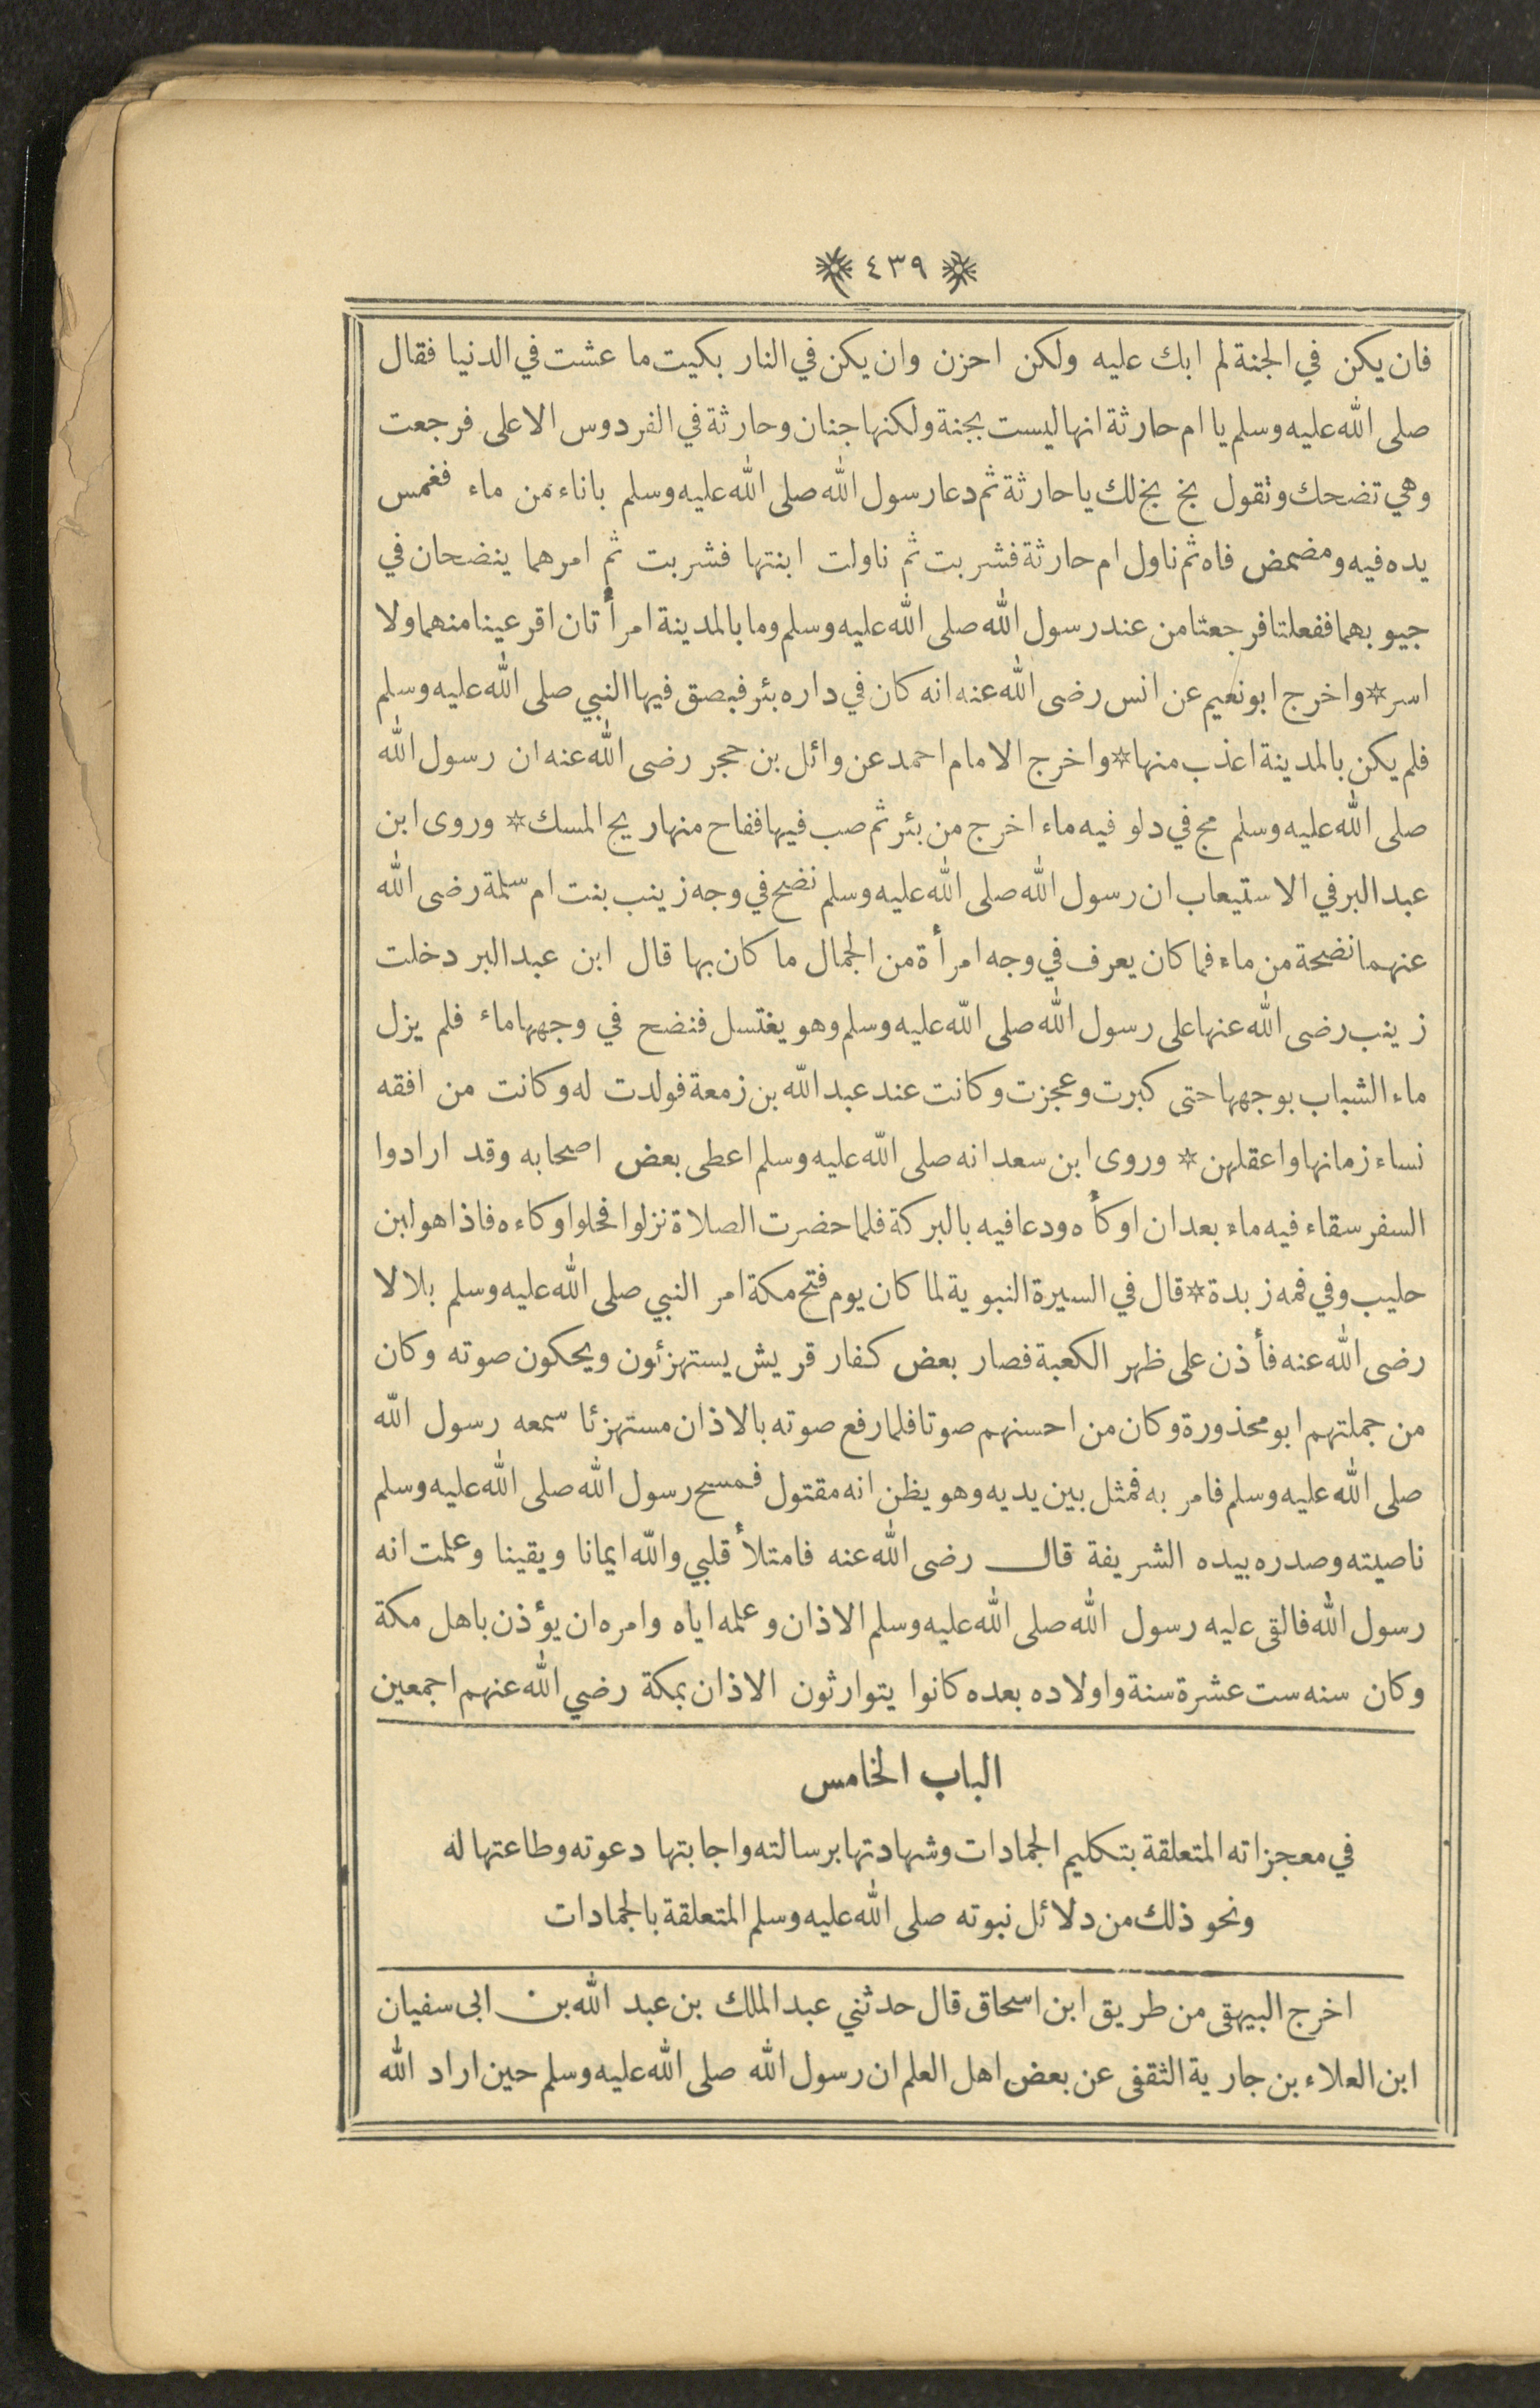 ٤٣٩
فان يكن في الجنة لم ابك عليه ولكن احزن وان يكن في النار بكيت ما عشت في الدنيا فقال
صلى الله عليه وسلم يا ام حارثة انها ليست بجنة ولكنها جنان وحارثة في الفردوس الاعلى فرجعت
وهي تضحك وتقول بخ بخ لك يا حارثة ثم دعا رسول الله صلى الله عليه وسلم باناء من ماء فغمس
يده فيه ومضمض فاه ثم ناول ام حارثة فشربت ثم ناولت ابنتها فشربت ثم امرهما ينضحان في
جيوبهما ففعلتا فرجعتا من عند رسول الله صلى الله عليه وسلم وما بالمدينة امرأتان اقر عينا منهما ولا
اسر * واخرج ابو نعيم عن انس رضى الله عنه انه كان في داره بئر فبصق فيها النبي صلى الله عليه وسلم
فلم يكن بالمدينة اعذب منها * واخرج الامام احمد عن وائل بن حجر رضى الله عنه ان رسول الله
صلى الله عليه وسلم مج في دلو فيه ماء اخرج من بئر ثم صب فيها ففاح منها ريح المسك * وروى ابن
عبد البر في الاستيعاب ان رسول الله صلى الله عليه وسلم نضح في وجه زينب بنت ام سلمة رضى الله
عنهما نضحة من ماء فما كان يعرف في وجه امرأة من الجمال ما كان بها قال ابن عبد البر دخلت
زينب رضى الله عنها على رسول الله صلى الله عليه وسلم وهو يغتسل فنضح في وجهها ماء فلم يزل
ماء الشباب بوجهها حتى كبرت وعجزت وكانت عند عبد الله بن زمعة فولدت له وكانت من افقه
نساء زمانها واعقلهن * وروى ابن سعد انه صلى الله عليه وسلم اعطى بعض اصحابه وقد ارادوا
السفر سقاء فيه ماء بعد ان اوكأه ودعا فيه بالبركة فلما حضرت الصلاة نزلوا فحلوا وكاءه فاذا هو لبن
حليب وفي فمه زبدة * قال في السيرة النبوية لما كان يوم فتح مكة امر النبي صلى الله عليه وسلم بلالا
رضى الله عنه فأذن على ظهر الكعبة فصار بعض كفار قريش يستهزئون ويحكون صوته وكان
من جملتهم ابو محذورة وكان من احسنهم صوتا فلما رفع صوته بالاذان مستهزئا سمعه رسول الله
صلى الله عليه وسلم فامر به فمثل بين يديه وهو يظن انه مقتول فمسح رسول الله صلى الله عليه وسلم
ناصيته وصدره بيده الشريفة قال رضى الله عنه فامتلأ قلبي والله ايمانا ويقينا وعلمت انه
رسول الله فالقى عليه رسول الله صلى الله عليه وسلم الاذان وعلمه اياه وامره ان يؤذن باهل مكة
وكان سنه ست عشرة سنة واولاده بعده كانوا يتوارثون الاذان بمكة رضي الله عنهم اجمعين
الباب الخامس
في معجزاته المتعلقة بتكليم الجمادات وشهادتها برسالته واجابتها دعوته وطاعتها له
ونحو ذلك من دلائل نبوته صلى الله عليه وسلم المتعلقة بالجمادات
اخرج البيهقى من طريق ابن اسحاق قال حدثني عبد الملك بن عبد الله بن ابى سفيان
ابن العلاء بن جارية الثقفى عن بعض اهل العلم ان رسول الله صلى الله عليه وسلم حين اراد الله